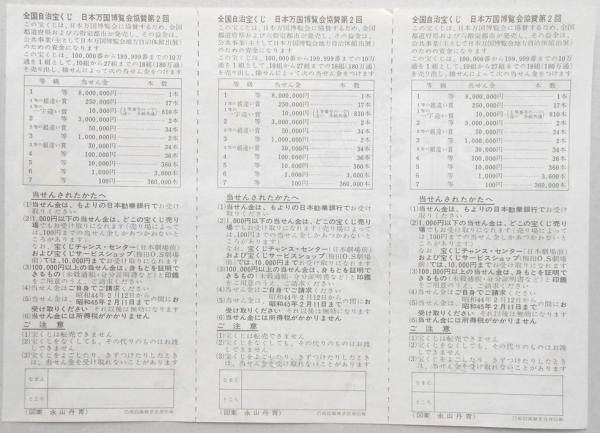 全国自治宝くじ 日本万国博覧会協賛第2回
この宝くじは、日本万国博覧会に協賛するため、全国
都道府県および六指定都市が発売し、その益金は、
公共事業(主として日本万国博覧会地方自治体館出展)
のための資金になります
この宝くじは、100,000番から199,999番までの10万
通を1組として、10組から27組までの18組(180万通)
を売り出し、抽せんによって次の当せん金をつけます
等級 当せん金 本数
1 等 8,000,000円 1本
1等の組違い賞 250,000円 17本
1等の一字違い賞 10,000円 810本
2 等 3,000,000円 2本
2等の組違い賞 50,000円 34本
3 等 1,000,000円 2本
3等の組違い賞 30,000円 34本
4 等 100,000円 36本
5 等 10,000円 360本
6 等 1,000円 3,600本
7 等 100円 360,000本
当せんされたかたへ
(1)当せん金は、もよりの日本勧業銀行でお受け
取りください
(2)1,000円以下の当せん金は、どこの宝くじ売り
場でもお受け取りになれます(売り場によって
は、100円までの当せん金しかあつかわないと
ころがあります)
なお、宝くじチャンス・センター(日本劇場前)
および宝くじサービスショップ(梅田O.S劇場
前)では、10,000円までお受け取りになれます
(3)100,000円以上の当せん金は、身もとを証明で
きるもの(米穀通帳・身分証明書など)と印鑑
をご用意のうえ、ご請求ください
(4)当せん金はご自身でご請求ください
(5)当せん金は、昭和44年2月12日から昭和45年2月11日までの間にお
受け取りください それ以後は無効になります
(6)当せん金には所得税がかかりません
ご注意
(1)宝くじは転売できません
(2)宝くじをなくしても、その代りのものはお渡
しできません
(3)宝くじをよごしたり、きずつけたりしたとき
は、当せん金を受け取れないことがあります
なまえ
ところ
(図案 永山丹青)
全国自治宝くじ 日本万国博覧会協賛第2回
この宝くじは、日本万国博覧会に協賛するため、全国
都道府県および六指定都市が発売し、その益金は、
公共事業(主として日本万国博覧会地方自治体館出展)
のための資金になります
この宝くじは、100,000番から199,999番までの10万
通を1組として、10組から27組までの18組(180万通)
を売り出し、抽せんによって次の当せん金をつけます
等級 当せん金 本数
1 等 8,000,000円 1本
1等の組違い賞 250,000円 17本
1等の一字違い賞 10,000円 810本
2 等 3,000,000円 2本
2等の組違い賞 50,000円 34本
3 等 1,000,000円 2本
3等の組違い賞 30,000円 34本
4 等 100,000円 36本
5 等 10,000円 360本
6 等 1,000円 3,600本
7 等 100円 360,000本
当せんされたかたへ
(1)当せん金は、もよりの日本勧業銀行でお受け
取りください
(2)1,000円以下の当せん金は、どこの宝くじ売り
場でもお受け取りになれます(売り場によって
は、100円までの当せん金しかあつかわないと
ころがあります)
なお、宝くじチャンス・センター(日本劇場前)
および宝くじサービスショップ(梅田O.S劇場
前)では、10,000円までお受け取りになれます
(3)100,000円以上の当せん金は、身もとを証明で
きるもの(米穀通帳・身分証明書など)と印鑑
をご用意のうえ、ご請求ください
(4)当せん金はご自身でご請求ください
(5)当せん金は、昭和44年2月12日から昭和45年2月11日までの間にお
受け取りください それ以後は無効になります
(6)当せん金には所得税がかかりません
ご注意
(1)宝くじは転売できません
(2)宝くじをなくしても、その代りのものはお渡
しできません
(3)宝くじをよごしたり、きずつけたりしたとき
は、当せん金を受け取れないことがあります
なまえ
ところ
(図案 永山丹青)
全国自治宝くじ 日本万国博覧会協賛第2回
この宝くじは、日本万国博覧会に協賛するため、全国
都道府県および六指定都市が発売し、その益金は、
公共事業(主として日本万国博覧会地方自治体館出展)
のための資金になります
この宝くじは、100,000番から199,999番までの10万
通を1組として、10組から27組までの18組(180万通)
を売り出し、抽せんによって次の当せん金をつけます
等級 当せん金 本数
1 等 8,000,000円 1本
1等の組違い賞 250,000円 17本
1等の一字違い賞 10,000円 810本
2 等 3,000,000円 2本
2等の組違い賞 50,000円 34本
3 等 1,000,000円 2本
3等の組違い賞 30,000円 34本
4 等 100,000円 36本
5 等 10,000円 360本
6 等 1,000円 3,600本
7 等 100円 360,000本
当せんされたかたへ
(1)当せん金は、もよりの日本勧業銀行でお受け
取りください
(2)1,000円以下の当せん金は、どこの宝くじ売り
場でもお受け取りになれます(売り場によって
は、100円までの当せん金しかあつかわないと
ころがあります)
なお、宝くじチャンス・センター(日本劇場前)
および宝くじサービスショップ(梅田O.S劇場
前)では、10,000円までお受け取りになれます
(3)100,000円以上の当せん金は、身もとを証明で
きるもの(米穀通帳・身分証明書など)と印鑑
をご用意のうえ、ご請求ください
(4)当せん金はご自身でご請求ください
(5)当せん金は、昭和44年2月12日から昭和45年2月11日までの間にお
受け取りください それ以後は無効になります
(6)当せん金には所得税がかかりません
ご注意
(1)宝くじは転売できません
(2)宝くじをなくしても、その代りのものはお渡
しできません
(3)宝くじをよごしたり、きずつけたりしたとき
は、当せん金を受け取れないことがあります
なまえ
ところ
(図案 永山丹青)